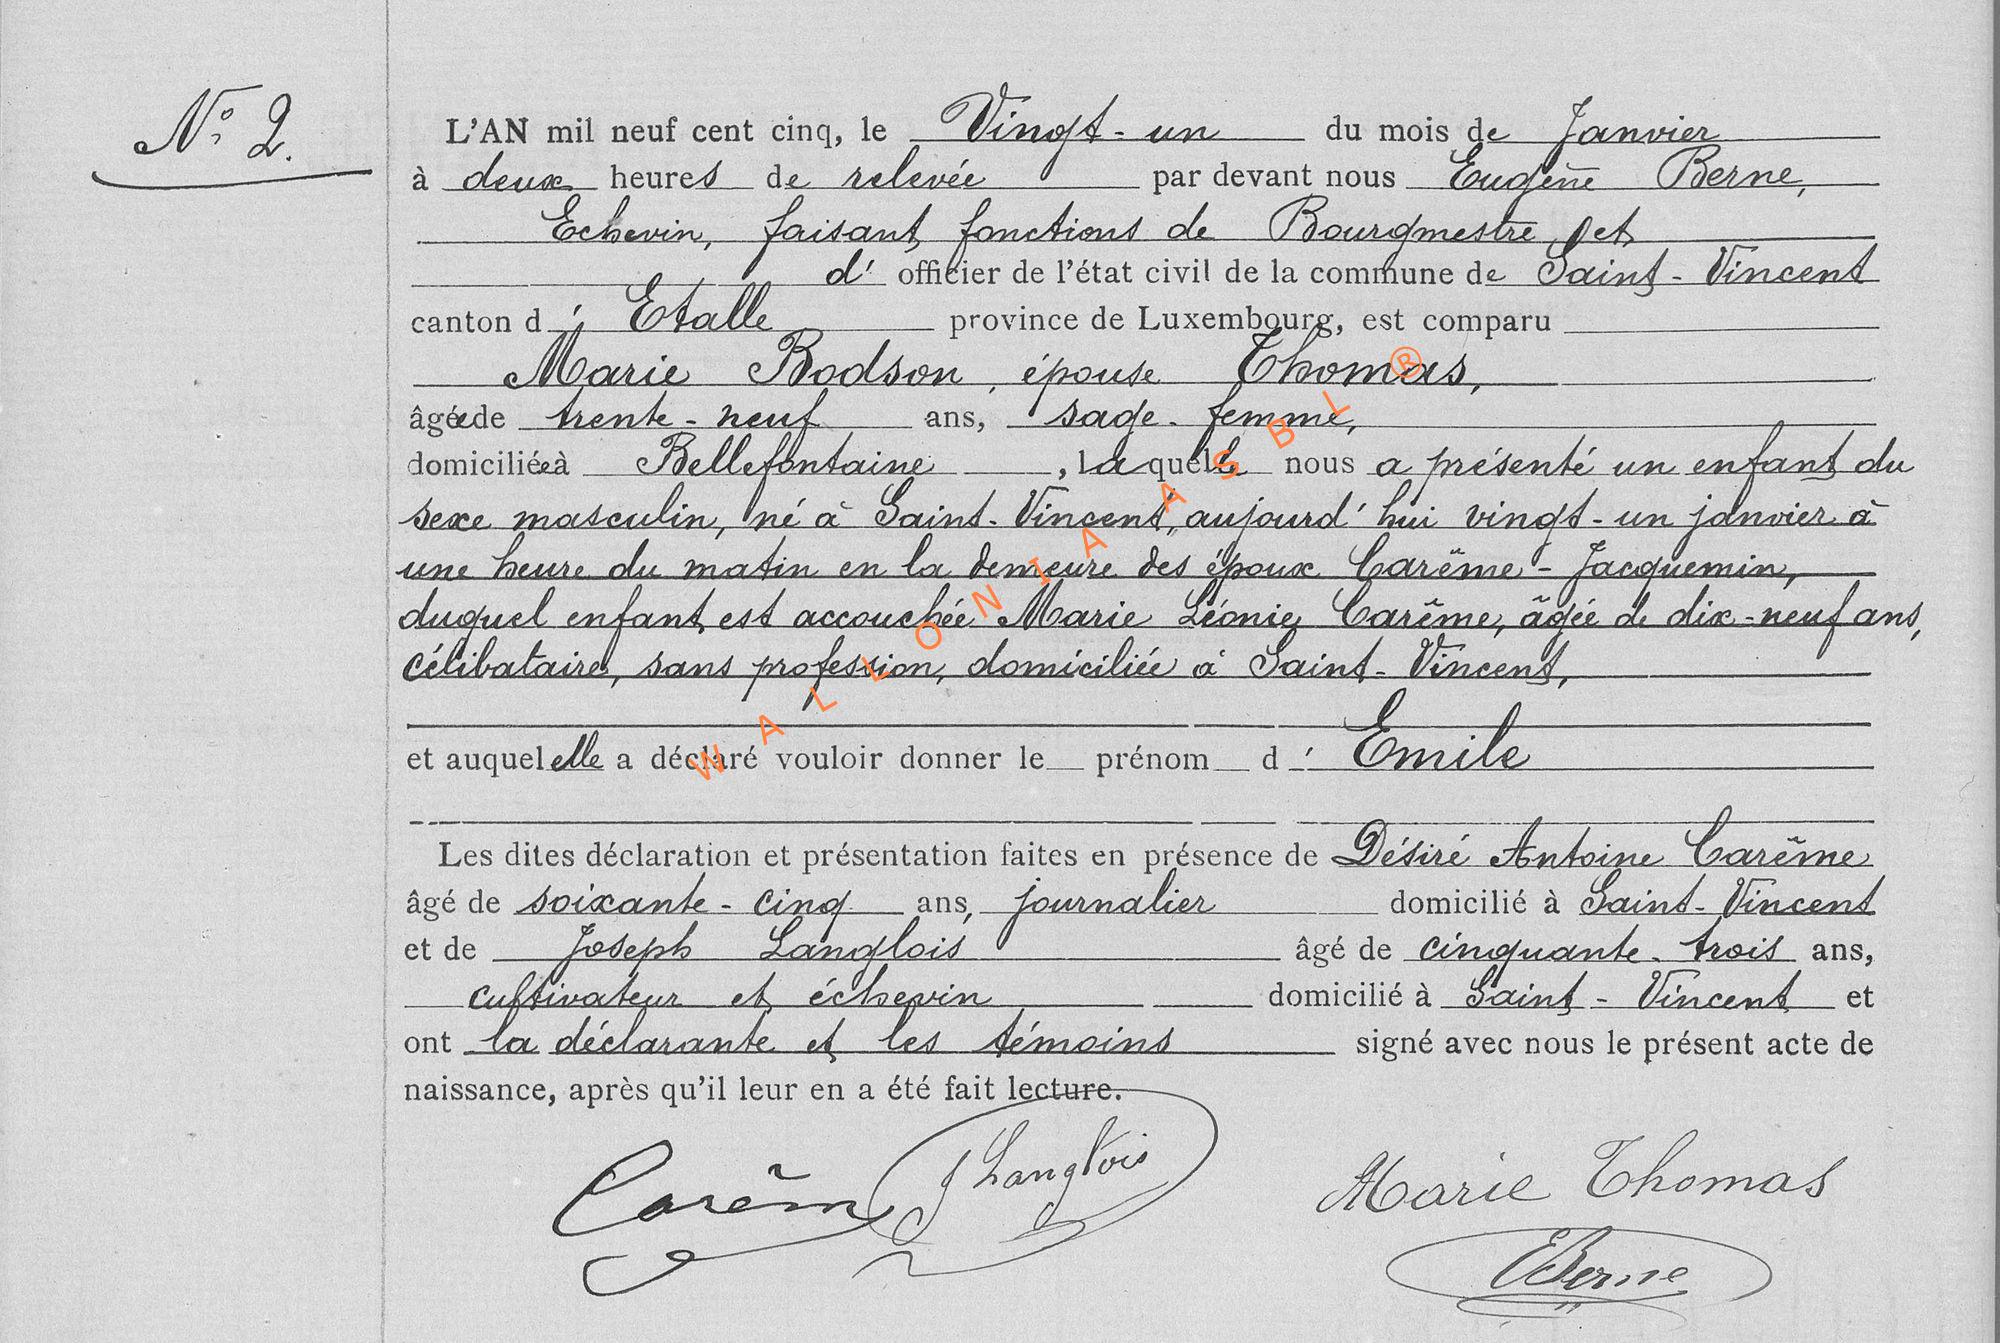 N° 2.
L'AN mil neuf cent cinq, le Vingt-un du mois de Janvier
à deux heures de relevée par devant nous Eugène Berne,
Echevin, faisant fonctions de Bourgmestre et
d' officier de l'état civil de la commune de Saint-Vincent
canton d' Etalle province de Luxembourg, est comparu
Marie Bodson, épouse Thomas,
âgée de trente-neuf ans, sage-femme,
domiciliée à Bellefontaine, laquelle nous a présenté un enfant du
sexe masculin, né à Saint-Vincent, aujourd'hui vingt-un janvier à
une heure du matin en la demeure des époux Carême-Jacquemin,
duquel enfant est accouchée Marie Léonie Carême, âgée de dix-neuf ans,
célibataire, sans profession, domiciliée à Saint-Vincent,
et auquel elle a déclaré vouloir donner le prénom d' Emile
Les dites déclaration et présentation faites en présence de Désiré Antoine Carême
âgé de soixante-cinq ans, journalier domicilié à Saint-Vincent
et de Joseph Langlois âgé de cinquante-trois ans,
cultivateur et échevin domicilié à Saint-Vincent et
ont la déclarante et les témoins signé avec nous le présent acte de
naissance, après qu'il leur en a été fait lecture.
Carêm J Langlois Marie Thomas
EBerne
WALLONIA ASBL ®